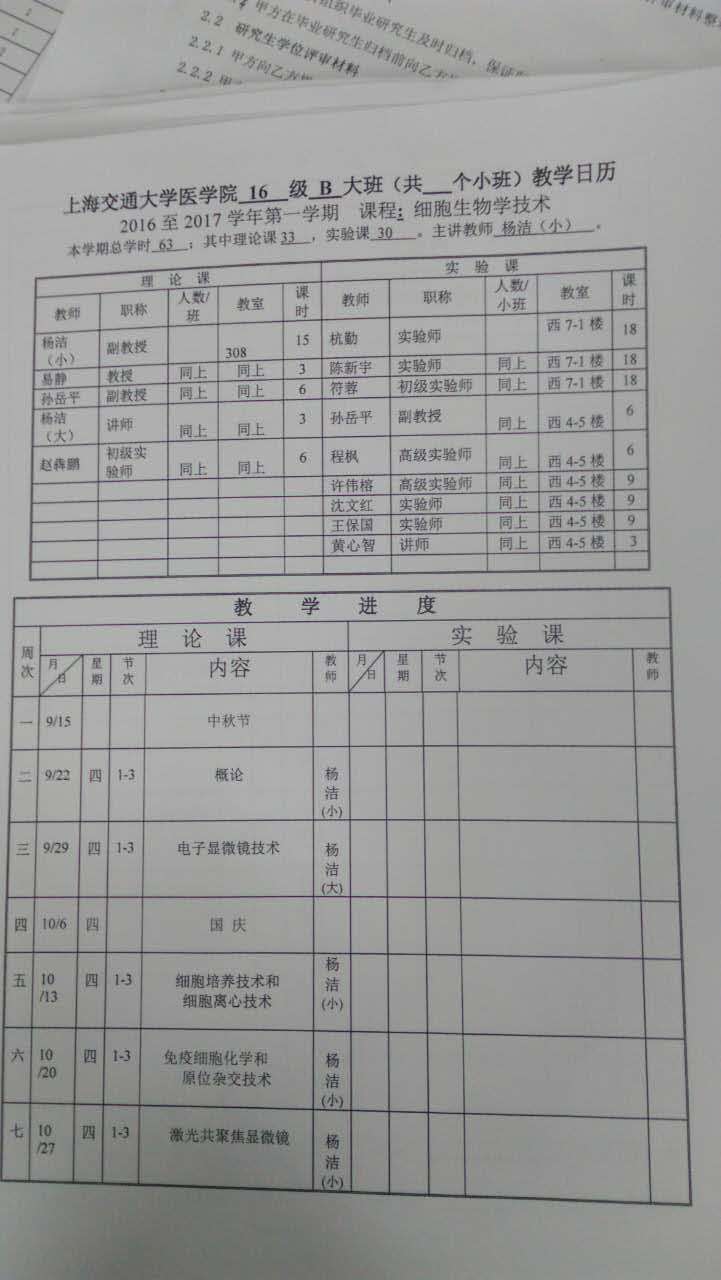 组织毕业研究生及时归档，保证
甲方在毕业研究生归档前向乙方
2.2 研究生学位评审材料
2.2.1 甲方向乙方
2.2.2 甲
审材料整
上海交通大学医学院 16 级 B 大班（共___个小班）教学日历
2016 至 2017 学年第一学期 课程: 细胞生物学技术
本学期总学时 63 ；其中理论课 33 ，实验课 30 。主讲教师 杨洁（小） 。
理 论 课 实 验 课
教师 职称 人数/班 教室 课时 教师 职称 人数/小班 教室 课时
杨洁（小） 副教授 308 15 杭勤 实验师 西 7-1 楼 18
易静 教授 同上 同上 3 陈新宇 实验师 同上 西 7-1 楼 18
孙岳平 副教授 同上 同上 6 符蓉 初级实验师 同上 西 7-1 楼 18
杨洁（大） 讲师 同上 同上 3 孙岳平 副教授 同上 西 4-5 楼 6
赵犇鹏 初级实验师 同上 同上 6 程枫 高级实验师 同上 西 4-5 楼 6
许伟榕 高级实验师 同上 西 4-5 楼 9
沈文红 实验师 同上 西 4-5 楼 9
王保国 实验师 同上 西 4-5 楼 9
黄心智 讲师 同上 西 4-5 楼 3
教 学 进 度
周次 理 论 课 实 验 课
月/日 星期 节次 内容 教师 月/日 星期 节次 内容 教师
一 9/15 中秋节
二 9/22 四 1-3 概论 杨洁(小)
三 9/29 四 1-3 电子显微镜技术 杨洁(大)
四 10/6 四 国 庆
五 10/13 四 1-3 细胞培养技术和细胞离心技术 杨洁(小)
六 10/20 四 1-3 免疫细胞化学和原位杂交技术 杨洁(小)
七 10/27 四 1-3 激光共聚焦显微镜 杨洁(小)